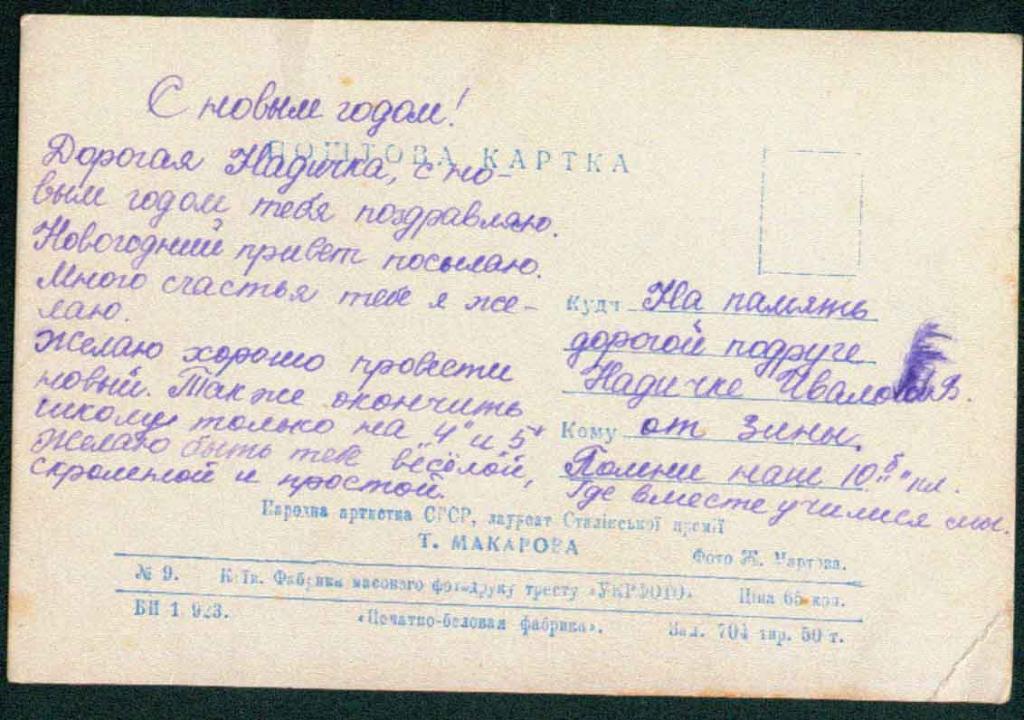 С новым годом!
ПОШТОВА КАРТКА
Дорогая Надичка, с но-
вым годом тебя поздравляю.
Новогодний привет посылаю.
Много счастья тебе я же-
лаю.
Желаю хорошо провести
новый. Также окончить
школу только на „4" и 5"
Желаю быть тебе весёлой,
скромной и простой.
Куди На память
дорогой подруге
Надичке В.
Кому от Зины.
Помни наш 10"б" кл.
Где вместе учились мы.
Народна артистка СРСР, лауреат Сталінської премії
Т. МАКАРОВА
Фото Ж. Мартова.
№ 9. Київ. Фабрика масового фотодруку тресту «УКРФОТО». Ціна 65 коп.
БН 1 923. «Печатно-беловая фабрика». Зал. 704 тир. 50 т.